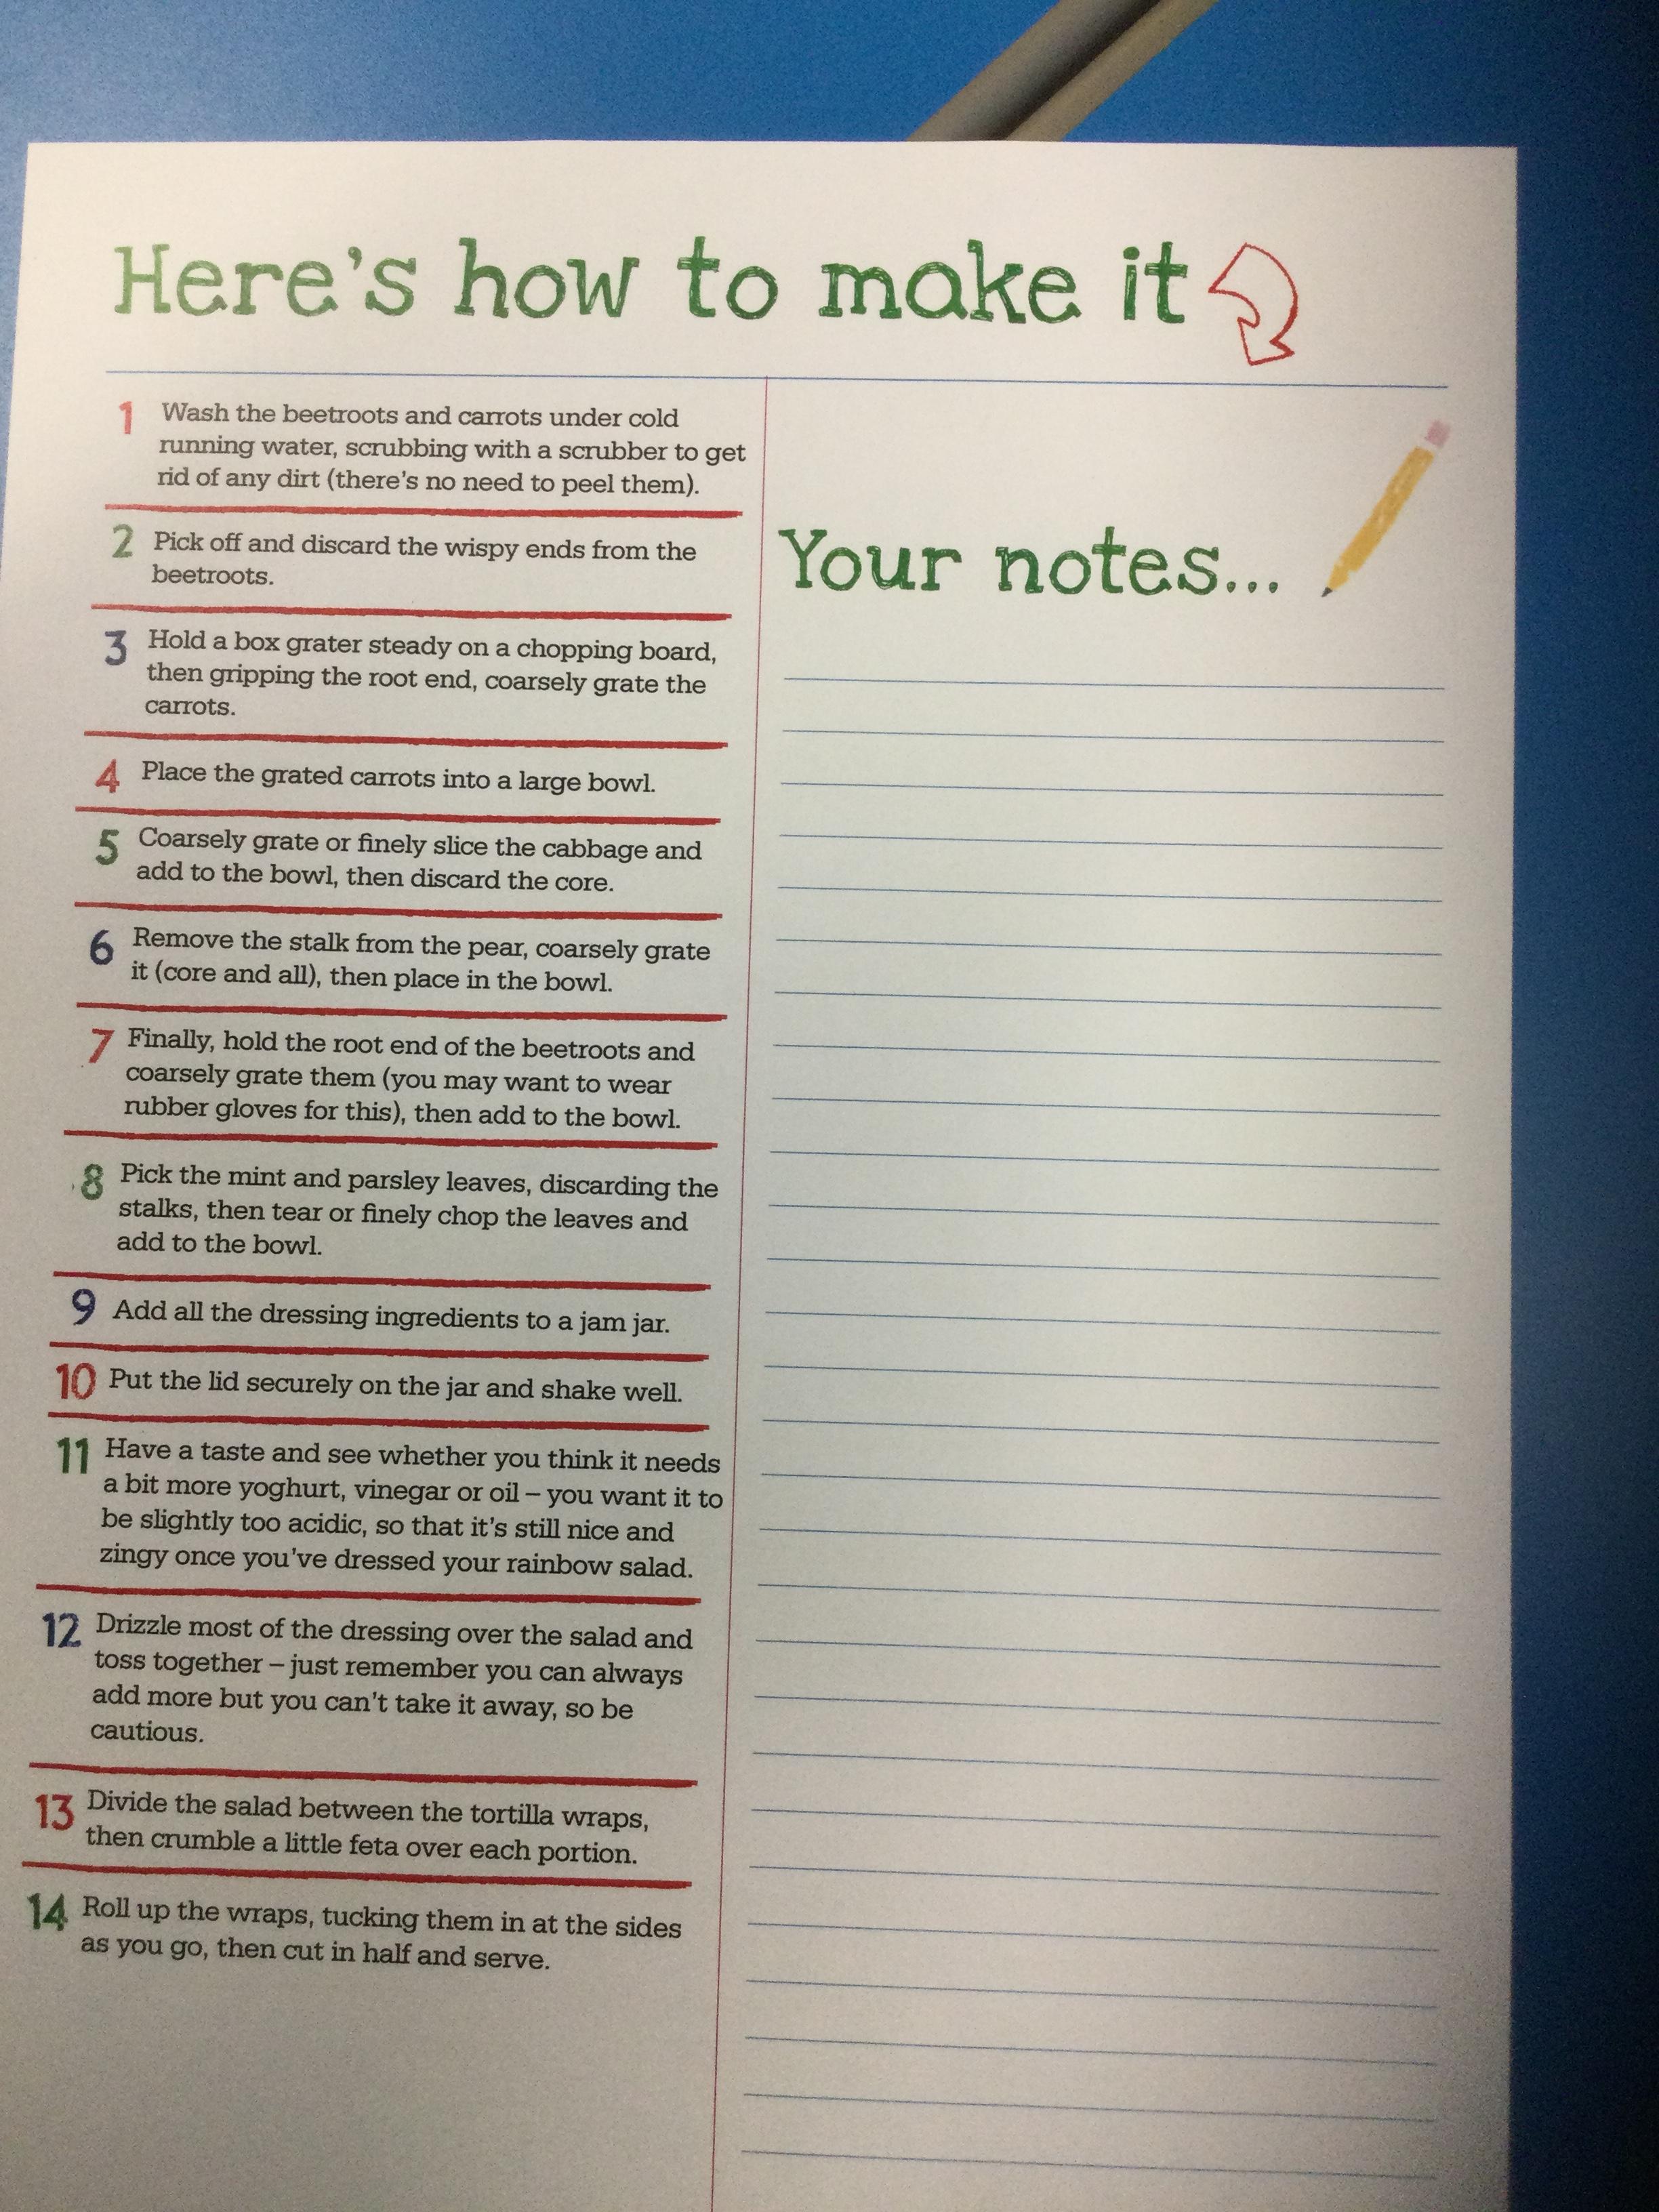 Here's how to make it
1 Wash the beetroots and carrots under cold
running water, scrubbing with a scrubber to get
rid of any dirt (there's no need to peel them).
2 Pick off and discard the wispy ends from the
beetroots.
3 Hold a box grater steady on a chopping board,
then gripping the root end, coarsely grate the
carrots.
4 Place the grated carrots into a large bowl.
5 Coarsely grate or finely slice the cabbage and
add to the bowl, then discard the core.
6 Remove the stalk from the pear, coarsely grate
it (core and all), then place in the bowl.
7 Finally, hold the root end of the beetroots and
coarsely grate them (you may want to wear
rubber gloves for this), then add to the bowl.
8 Pick the mint and parsley leaves, discarding the
stalks, then tear or finely chop the leaves and
add to the bowl.
9 Add all the dressing ingredients to a jam jar.
10 Put the lid securely on the jar and shake well.
11 Have a taste and see whether you think it needs
a bit more yoghurt, vinegar or oil – you want it to
be slightly too acidic, so that it's still nice and
zingy once you've dressed your rainbow salad.
12 Drizzle most of the dressing over the salad and
toss together – just remember you can always
add more but you can't take it away, so be
cautious.
13 Divide the salad between the tortilla wraps,
then crumble a little feta over each portion.
14 Roll up the wraps, tucking them in at the sides
as you go, then cut in half and serve.
Your notes...